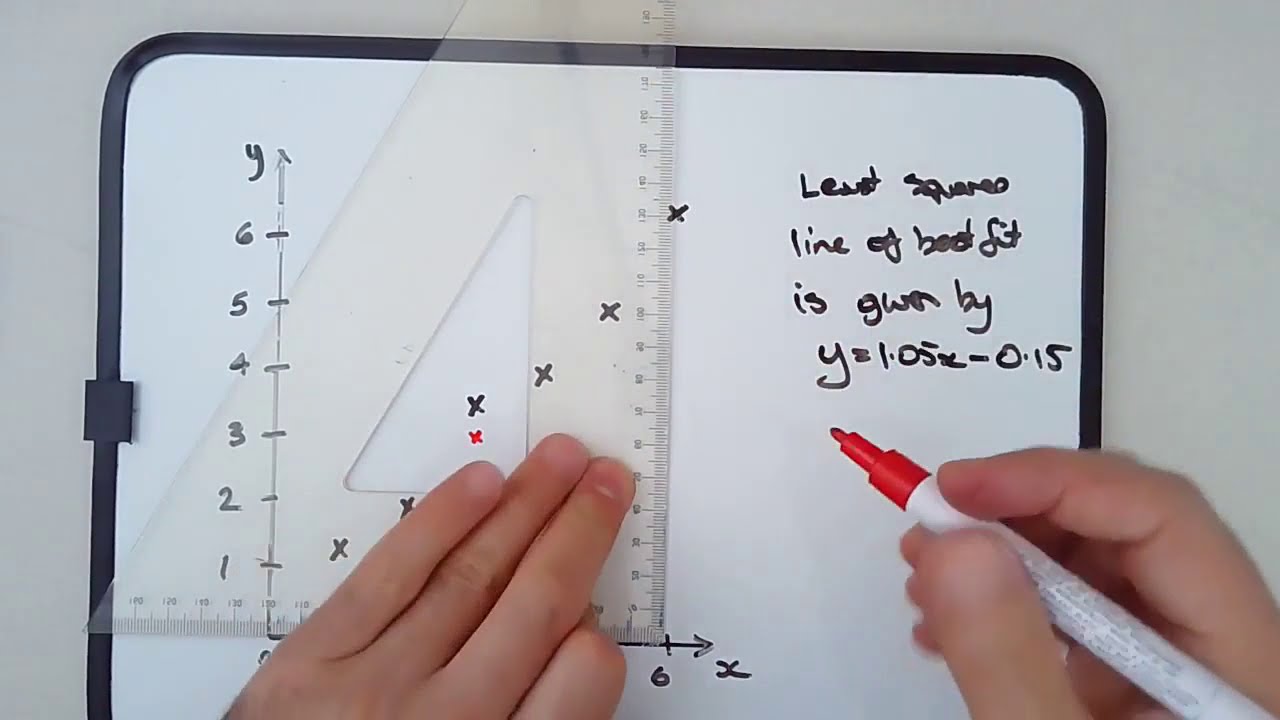 y
6
5
4
3
2
1
6
x
Least squares
line of best fit
is given by
y=1.05x-0.15